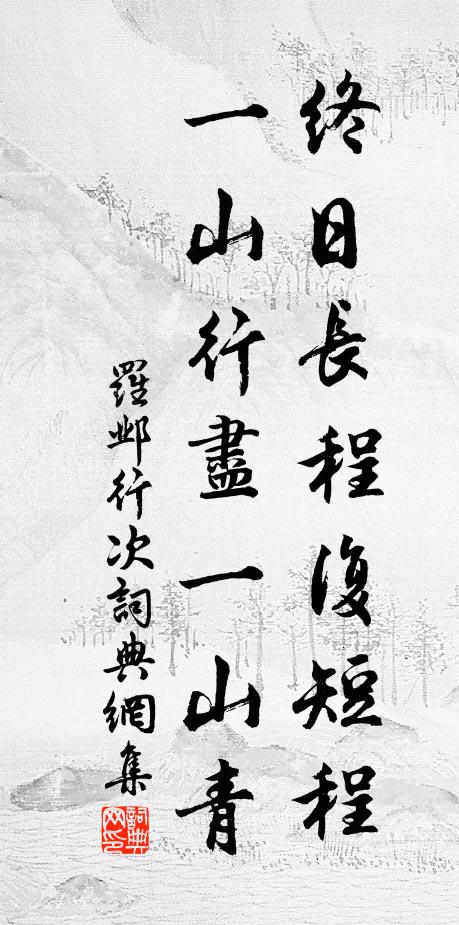 終日長程復短程
一山行盡一山青
羅鄴行次詞典網集
詞典网印